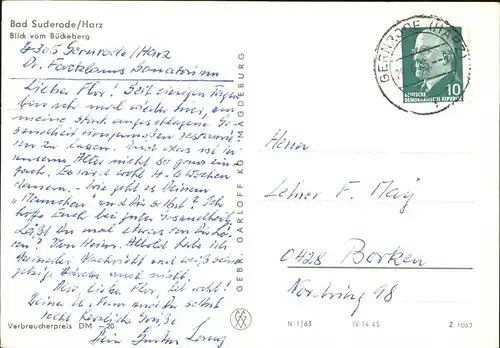 Bad Suderode/Harz
Blick vom Bückeberg
4305 Gernrode/Harz
Dr. Sanatorium
Lieber Flor! Seit einigen Tagen
bin ich mal wieder hier, um
meine stark angeschlagene Ge-
sundheit einigermaßen restaurie-
ren zu lassen. Und das ist in
unserem Alter nicht so ganz ein-
fach. Es wird wohl 4-6 Wochen
dauern. - Wie geht es Deinem
"Mamchen" und Dir selbst? Ich
hoffe Euch bei guter Gesundheit.
Läßt Du mal etwas von Dir hö-
ren? Von Heinr. habe ich
keinerlei Nachricht und weiß seine
jetzige Adresse auch nicht.
Also, lieber Flor, leb wohl!
Deiner lb. Frau und Dir selbst
recht herzliche Grüße
Dein Gustav Lorenz
Verbraucherpreis DM -,20
GEBR. GARLOFF KG · MAGDEBURG
GERNRODE (HARZ)
10
DEUTSCHE
DEMOKRATISCHE REPUBLIK
Herrn
Lehrer F.
0428 Borken
Nordring 98
N 1/63 IV-14-45 Z 1067